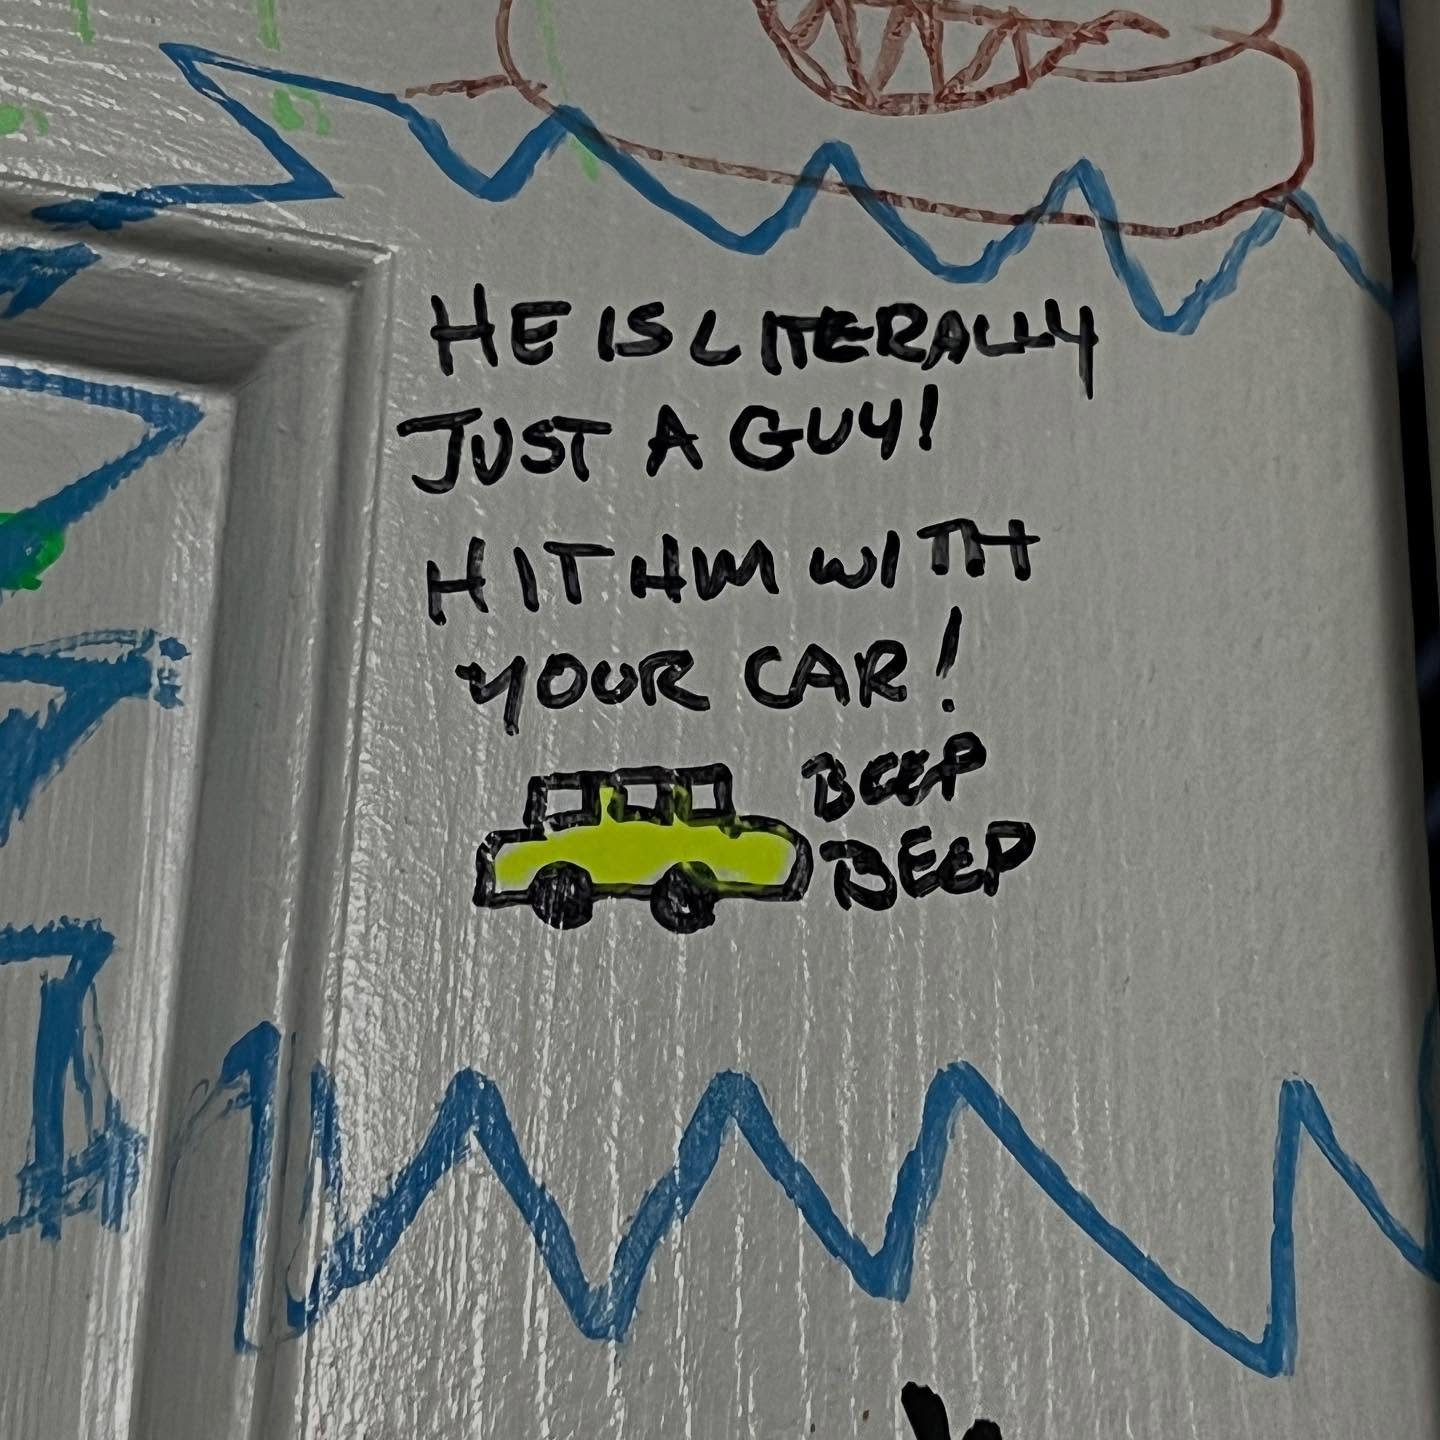 HE IS LITERALLY
JUST A GUY!
HIT HIM WITH
YOUR CAR!
BEEP
BEEP